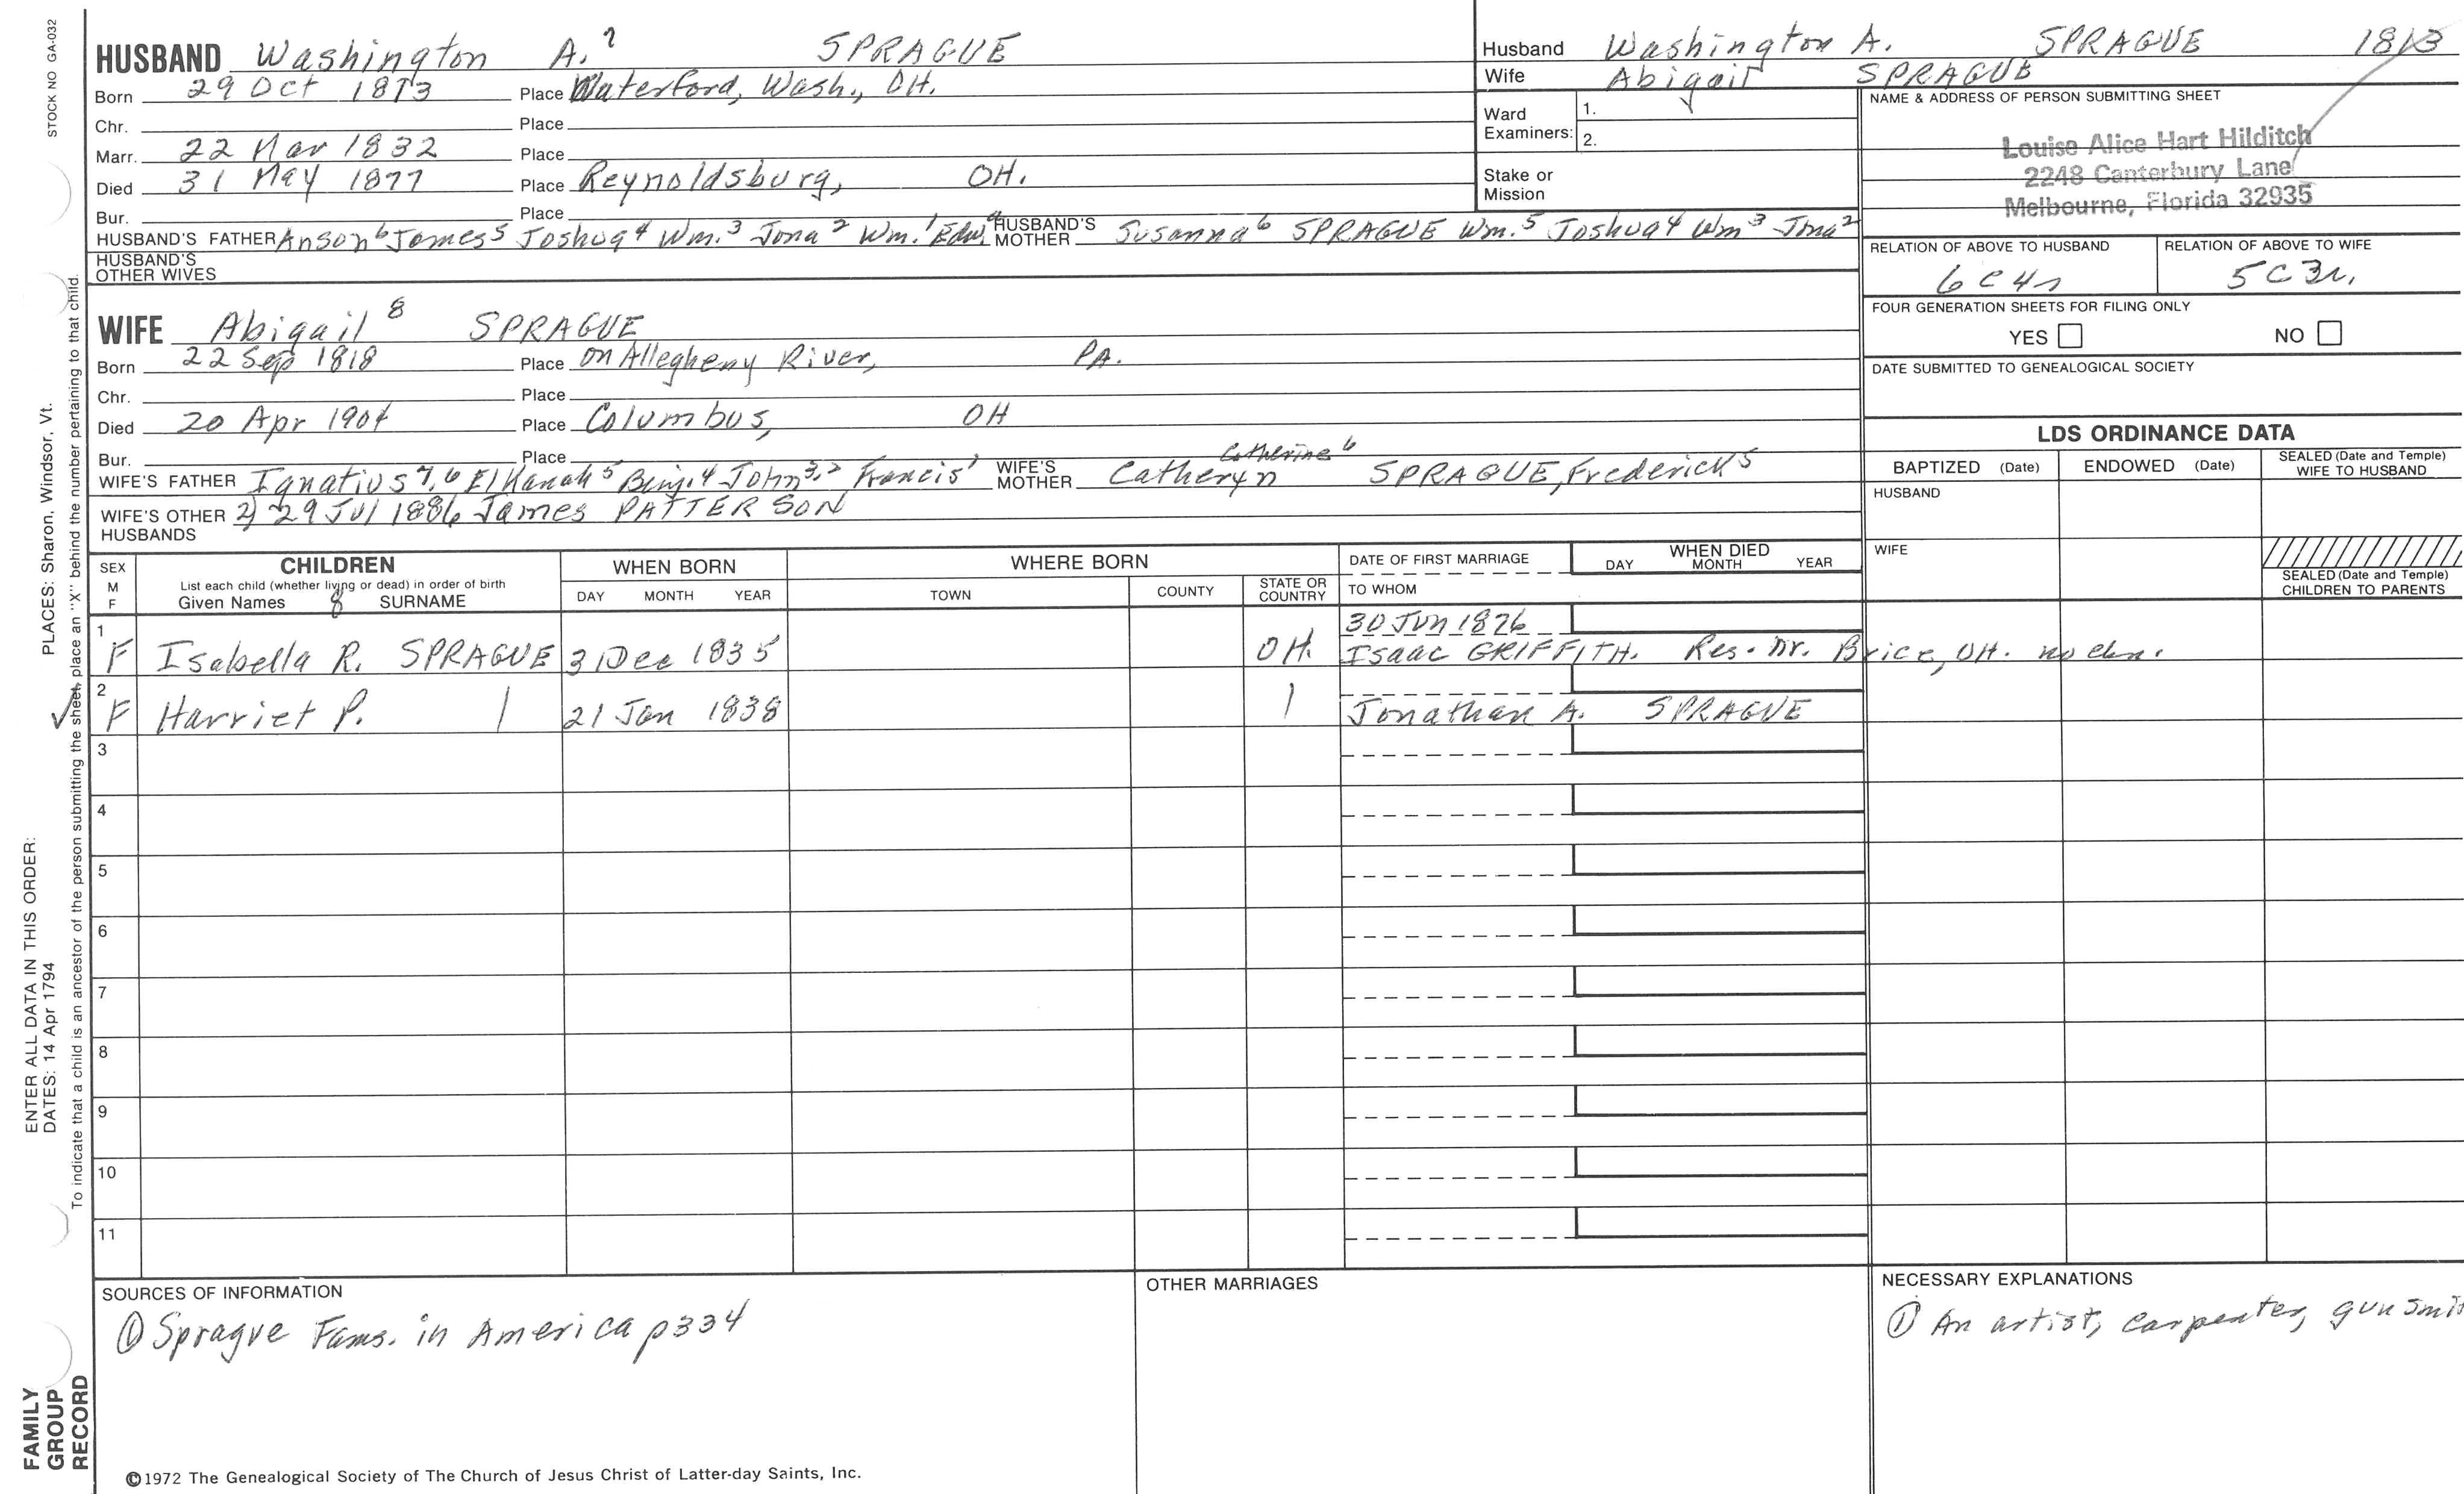 STOCK NO GA-032
PLACES: Sharon, Windsor, Vt.
ENTER ALL DATA IN THIS ORDER:
DATES: 14 Apr 1794
To indicate that a child is an ancestor of the person submitting the sheet, place an "X" behind the number pertaining to that child.
FAMILY
GROUP
RECORD
HUSBAND Washington A.7 SPRAGUE
Born 29 Oct 1813 Place Waterford, Wash., OH.
Chr. Place
Marr. 22 Mar 1832 Place
Died 31 May 1877 Place Reynoldsburg, OH.
Bur. Place
HUSBAND'S FATHER Anson6 James5 Joshua4 Wm.3 Jona2 Wm.1 Edw.a HUSBAND'S MOTHER Susanna6 SPRAGUE Wm.5 Joshua4 Wm3 Jona2
HUSBAND'S OTHER WIVES
WIFE Abigail8 SPRAGUE
Born 22 Sep 1818 Place on Allegheny River, PA.
Chr. Place
Died 20 Apr 1904 Place Columbus, OH
Bur. Place
Catherine6
WIFE'S FATHER Ignatius7,6 ElKanah5 Benj.4 John3,2 Francis1 WIFE'S MOTHER Catheryn SPRAGUE, Frederick5
WIFE'S OTHER HUSBANDS 2) 29 Jul 1886 James PATTERSON
Husband Washington A. SPRAGUE 1813
Wife Abigail SPRAGUE
Ward Examiners: 1.
2.
Stake or Mission
NAME & ADDRESS OF PERSON SUBMITTING SHEET
Louise Alice Hart Hilditch
2248 Canterbury Lane
Melbourne, Florida 32935
RELATION OF ABOVE TO HUSBAND RELATION OF ABOVE TO WIFE
6C4r 5C3r.
FOUR GENERATION SHEETS FOR FILING ONLY
YES NO
DATE SUBMITTED TO GENEALOGICAL SOCIETY
LDS ORDINANCE DATA
BAPTIZED (Date) ENDOWED (Date) SEALED (Date and Temple) WIFE TO HUSBAND
HUSBAND
WIFE
SEALED (Date and Temple) CHILDREN TO PARENTS
SEX M F CHILDREN WHEN BORN WHERE BORN DATE OF FIRST MARRIAGE WHEN DIED
List each child (whether living or dead) in order of birth
Given Names 8 SURNAME DAY MONTH YEAR TOWN COUNTY STATE OR COUNTRY TO WHOM DAY MONTH YEAR
1 30 Jun 1876
F Isabella R. SPRAGUE 31 Dec 1835 OH. ISAAC GRIFFITH. Res. nr. Brice, OH. no chn.
2
✓ F Harriet P. | 21 Jan 1838 | Jonathan A. SPRAGUE
3
4
5
6
7
8
9
10
11
SOURCES OF INFORMATION
① Sprague Fams. in America p334
OTHER MARRIAGES
NECESSARY EXPLANATIONS
① An artist, carpenter, gunsmit
©1972 The Genealogical Society of The Church of Jesus Christ of Latter-day Saints, Inc.